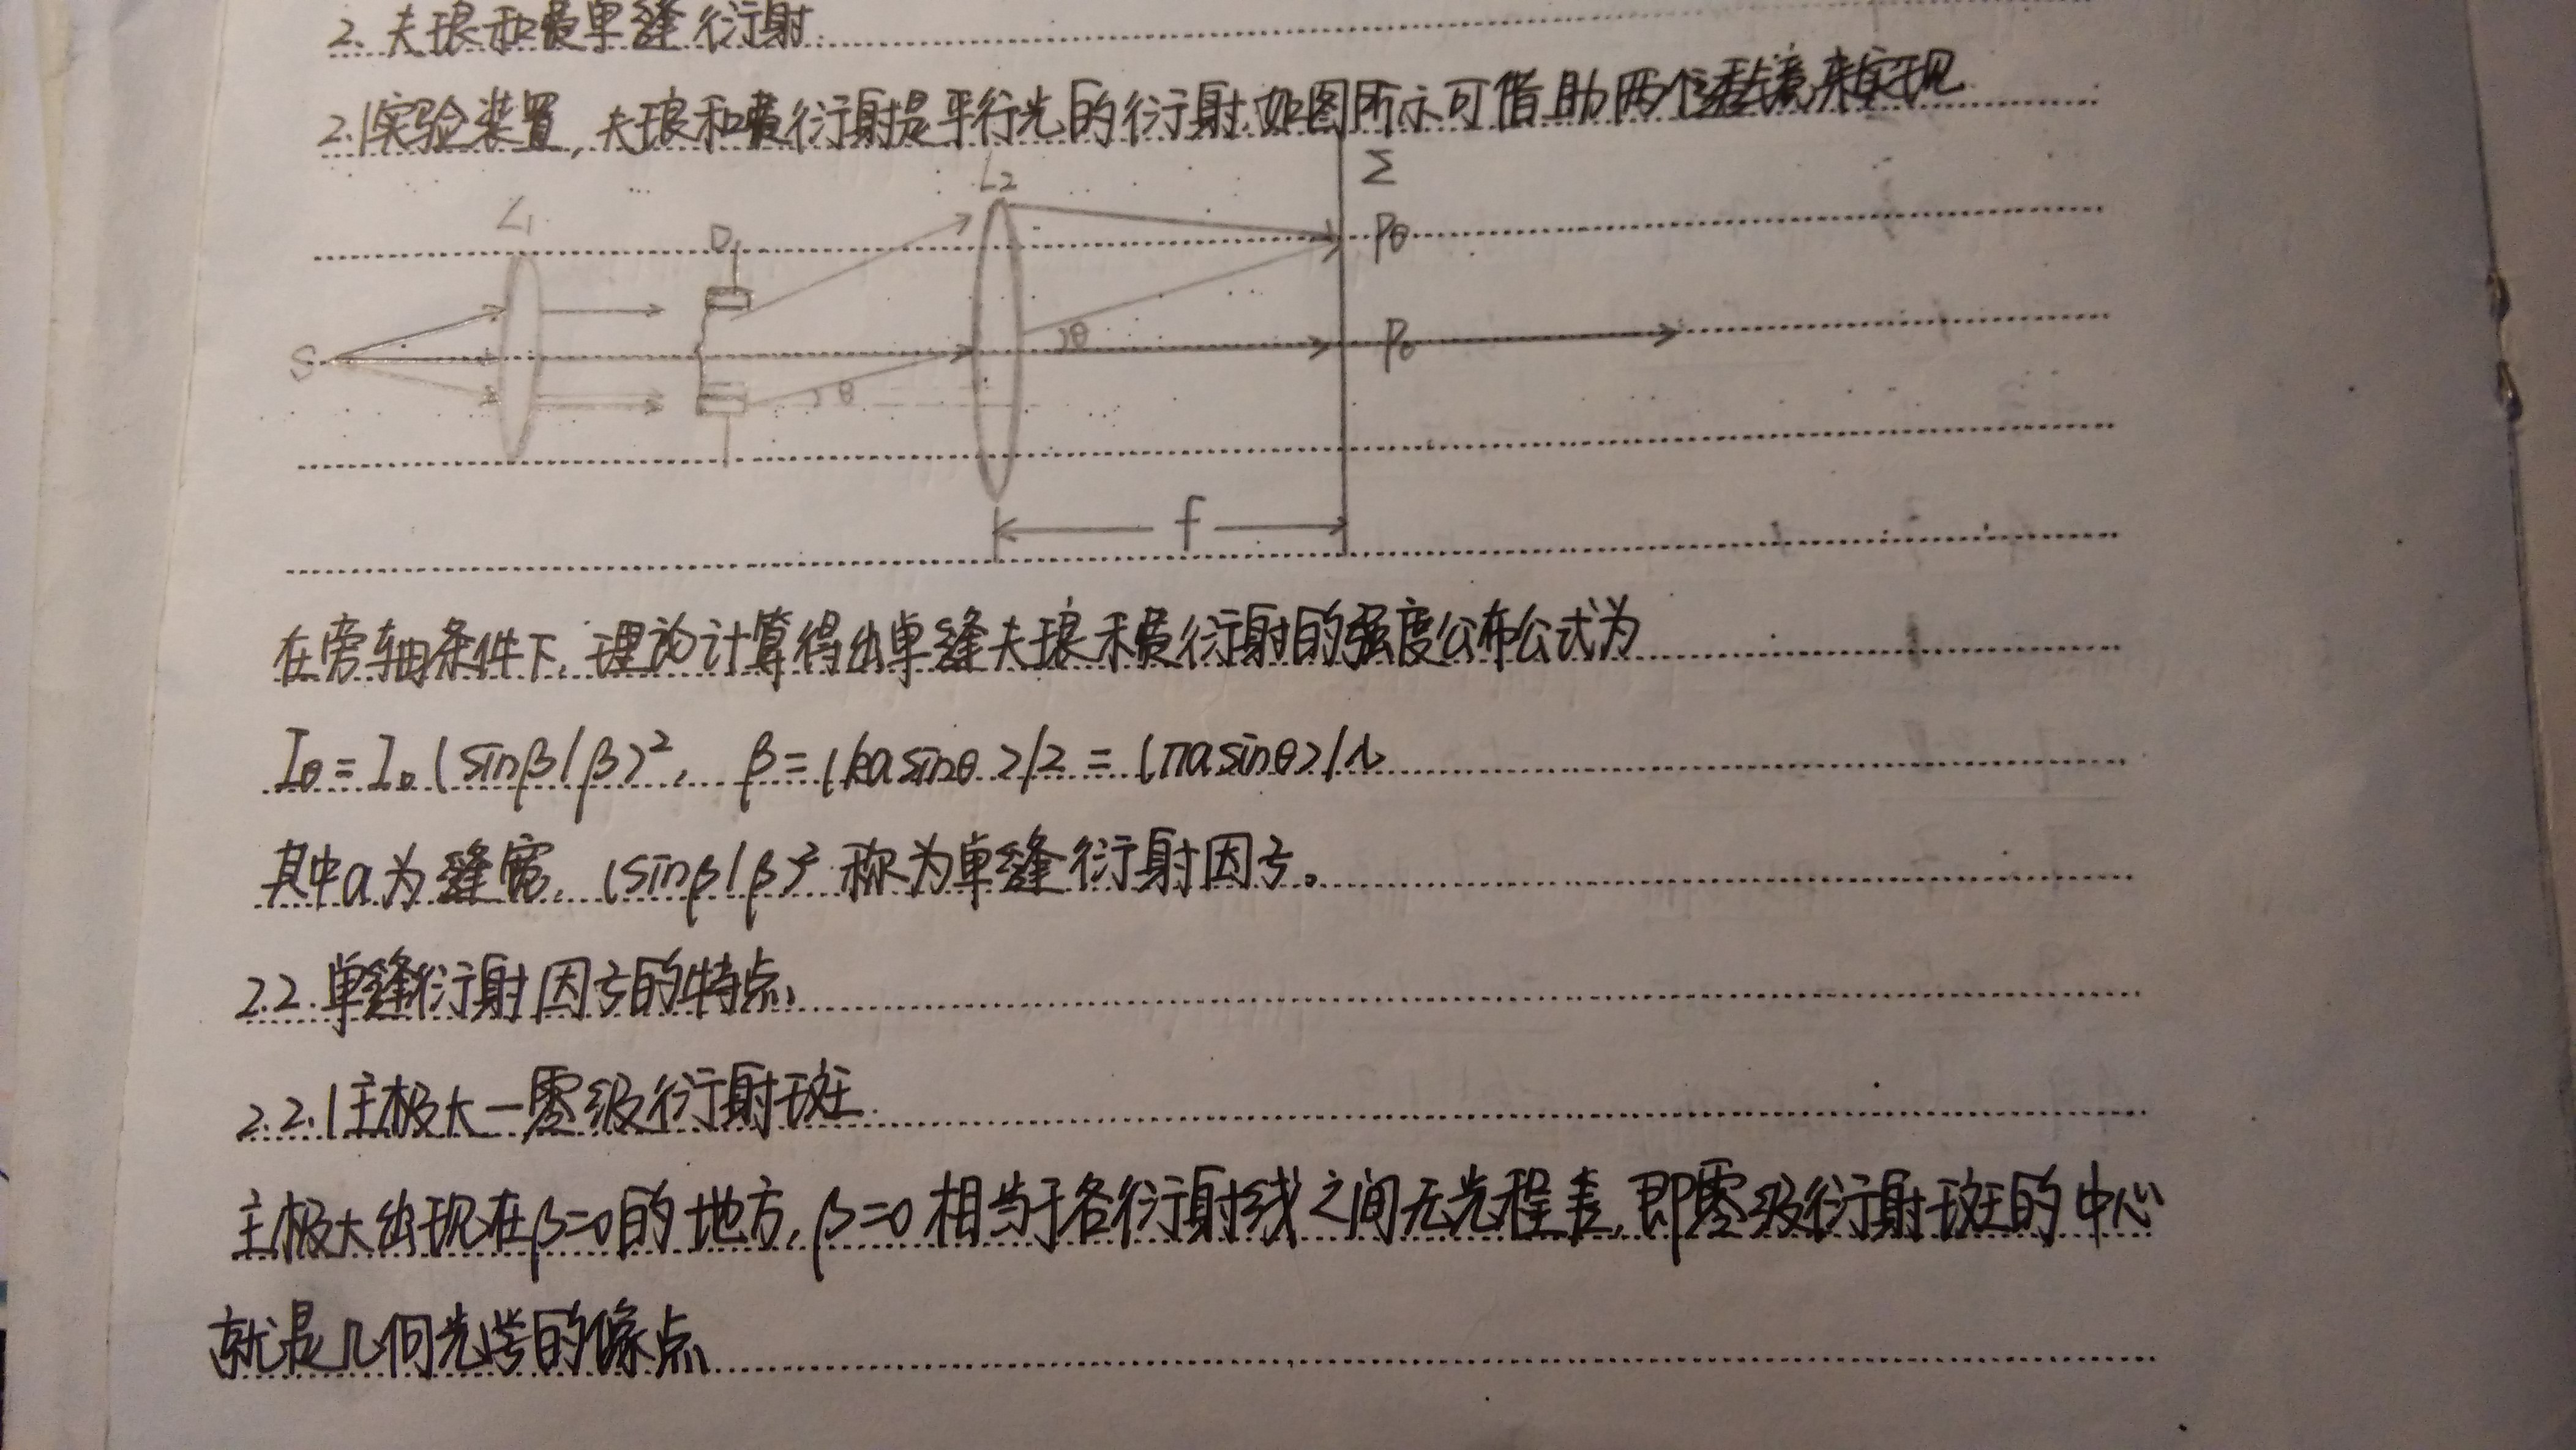 2. 夫琅和费单缝衍射
2.1实验装置,夫琅和费衍射是平行光的衍射,如图所示可借助两个透镜来实现
Σ
L2
L1
D
Pθ
S
θ
P0
θ
f
在旁轴条件下,理论计算得出单缝夫琅禾费衍射的强度公布公式为
Iθ=I0(sinβ/β)², β=(kasinθ)/2=(πasinθ)/λ
其中a为缝宽,(sinβ/β)²称为单缝衍射因子。
2.2.单缝衍射因子的特点
2.2.1主极大—零级衍射斑
主极大出现在β=0的地方,β=0相当于各衍射线之间无光程差,即零级衍射斑的中心
就是几何光学的像点